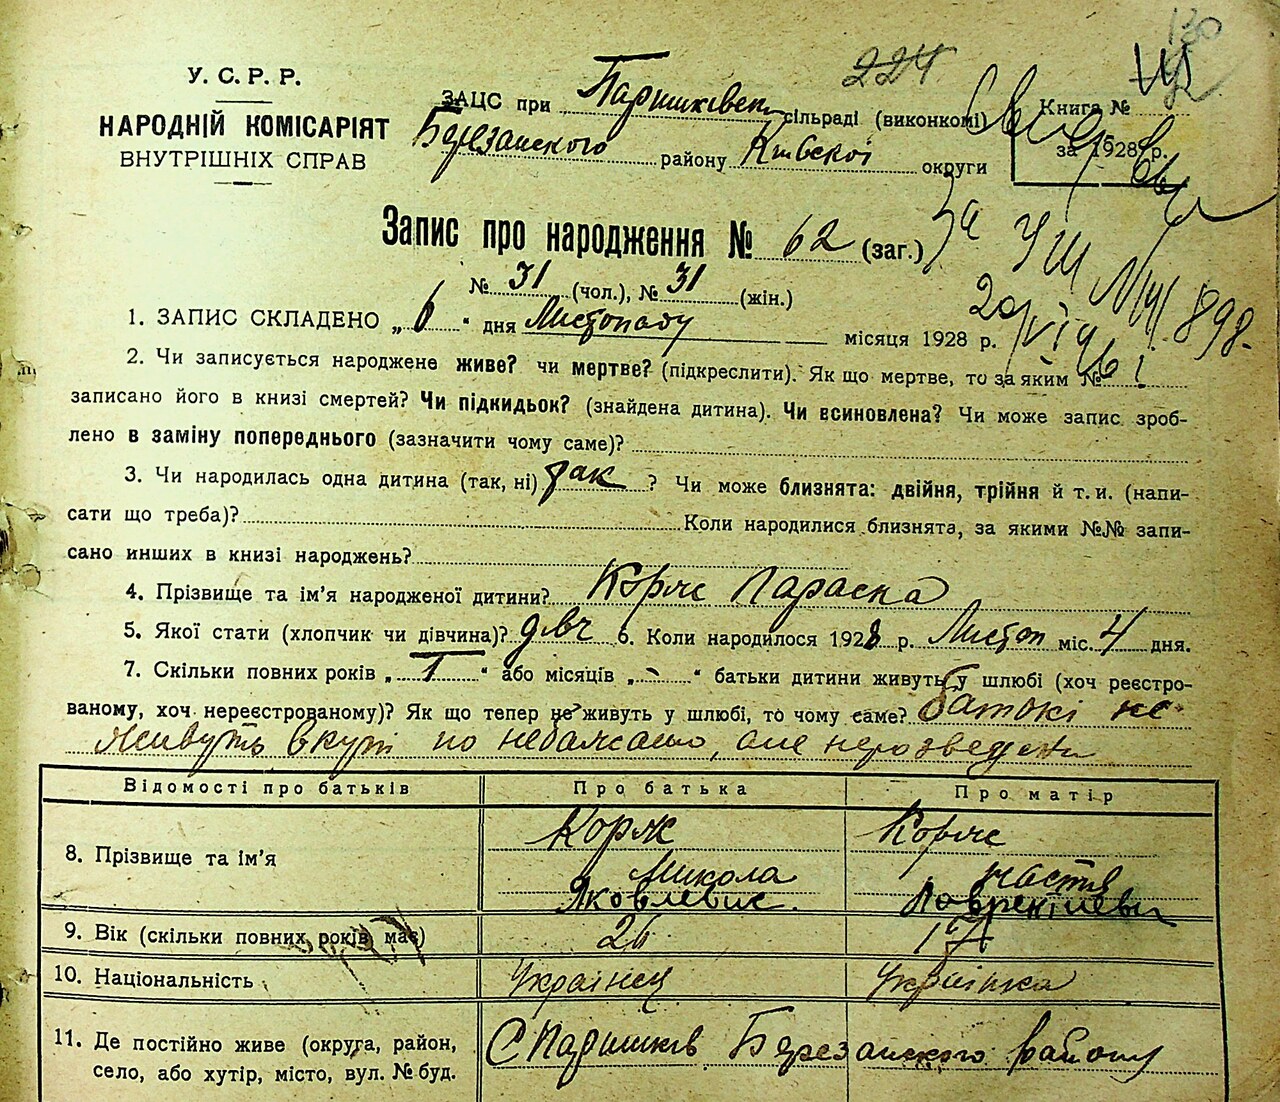 130
224
У. С. Р. Р.
НАРОДНІЙ КОМІСАРІЯТ
ВНУТРІШНІХ СПРАВ
ЗАЦС при Паришківсп сільраді (виконкомі)
Березанского району Київскої округи
Книга №
за 1928 р.
Запис про народження № 62 (заг.)
№ 31 (чол.), № 31 (жін.)
За УШ № 898.
20/VI 1961
1. ЗАПИС СКЛАДЕНО „ 6 “ дня Листопаду місяця 1928 р.
2. Чи записується народжене живе? чи мертве? (підкреслити). Як що мертве, то за яким №
записано його в книзі смертей? Чи підкидьок? (знайдена дитина). Чи всиновлена? Чи може запис зроб-
лено в заміну попереднього (зазначити чому саме)?
3. Чи народилась одна дитина (так, ні) так ? Чи може близнята: двійня, трійня й т. и. (напи-
сати що треба)? Коли народилися близнята, за якими №№ запи-
сано инших в книзі народжень?
4. Прізвище та ім’я народженої дитини? Корж Параска
5. Якої стати (хлопчик чи дівчина)? дівч 6. Коли народилося 1928 р. Листоп міс. 4 дня.
7. Скільки повних років „ 1 “ або місяців „ - “ батьки дитини живуть у шлюбі (хоч реєстро-
ваному, хоч нереєстрованому)? Як що тепер не живуть у шлюбі, то чому саме? батюкі не
живуть вкупі по небажано, але нерозведени
Відомості про батьків Про батька Про матір
8. Прізвище та ім’я Корж Микола Яковлевис. Корж Настя
9. Вік (скільки повних років має) 26 17
10. Національність Українец Українка
11. Де постійно живе (округа, район, С Паришків Березанского району
село, або хутір, місто, вул. № буд.